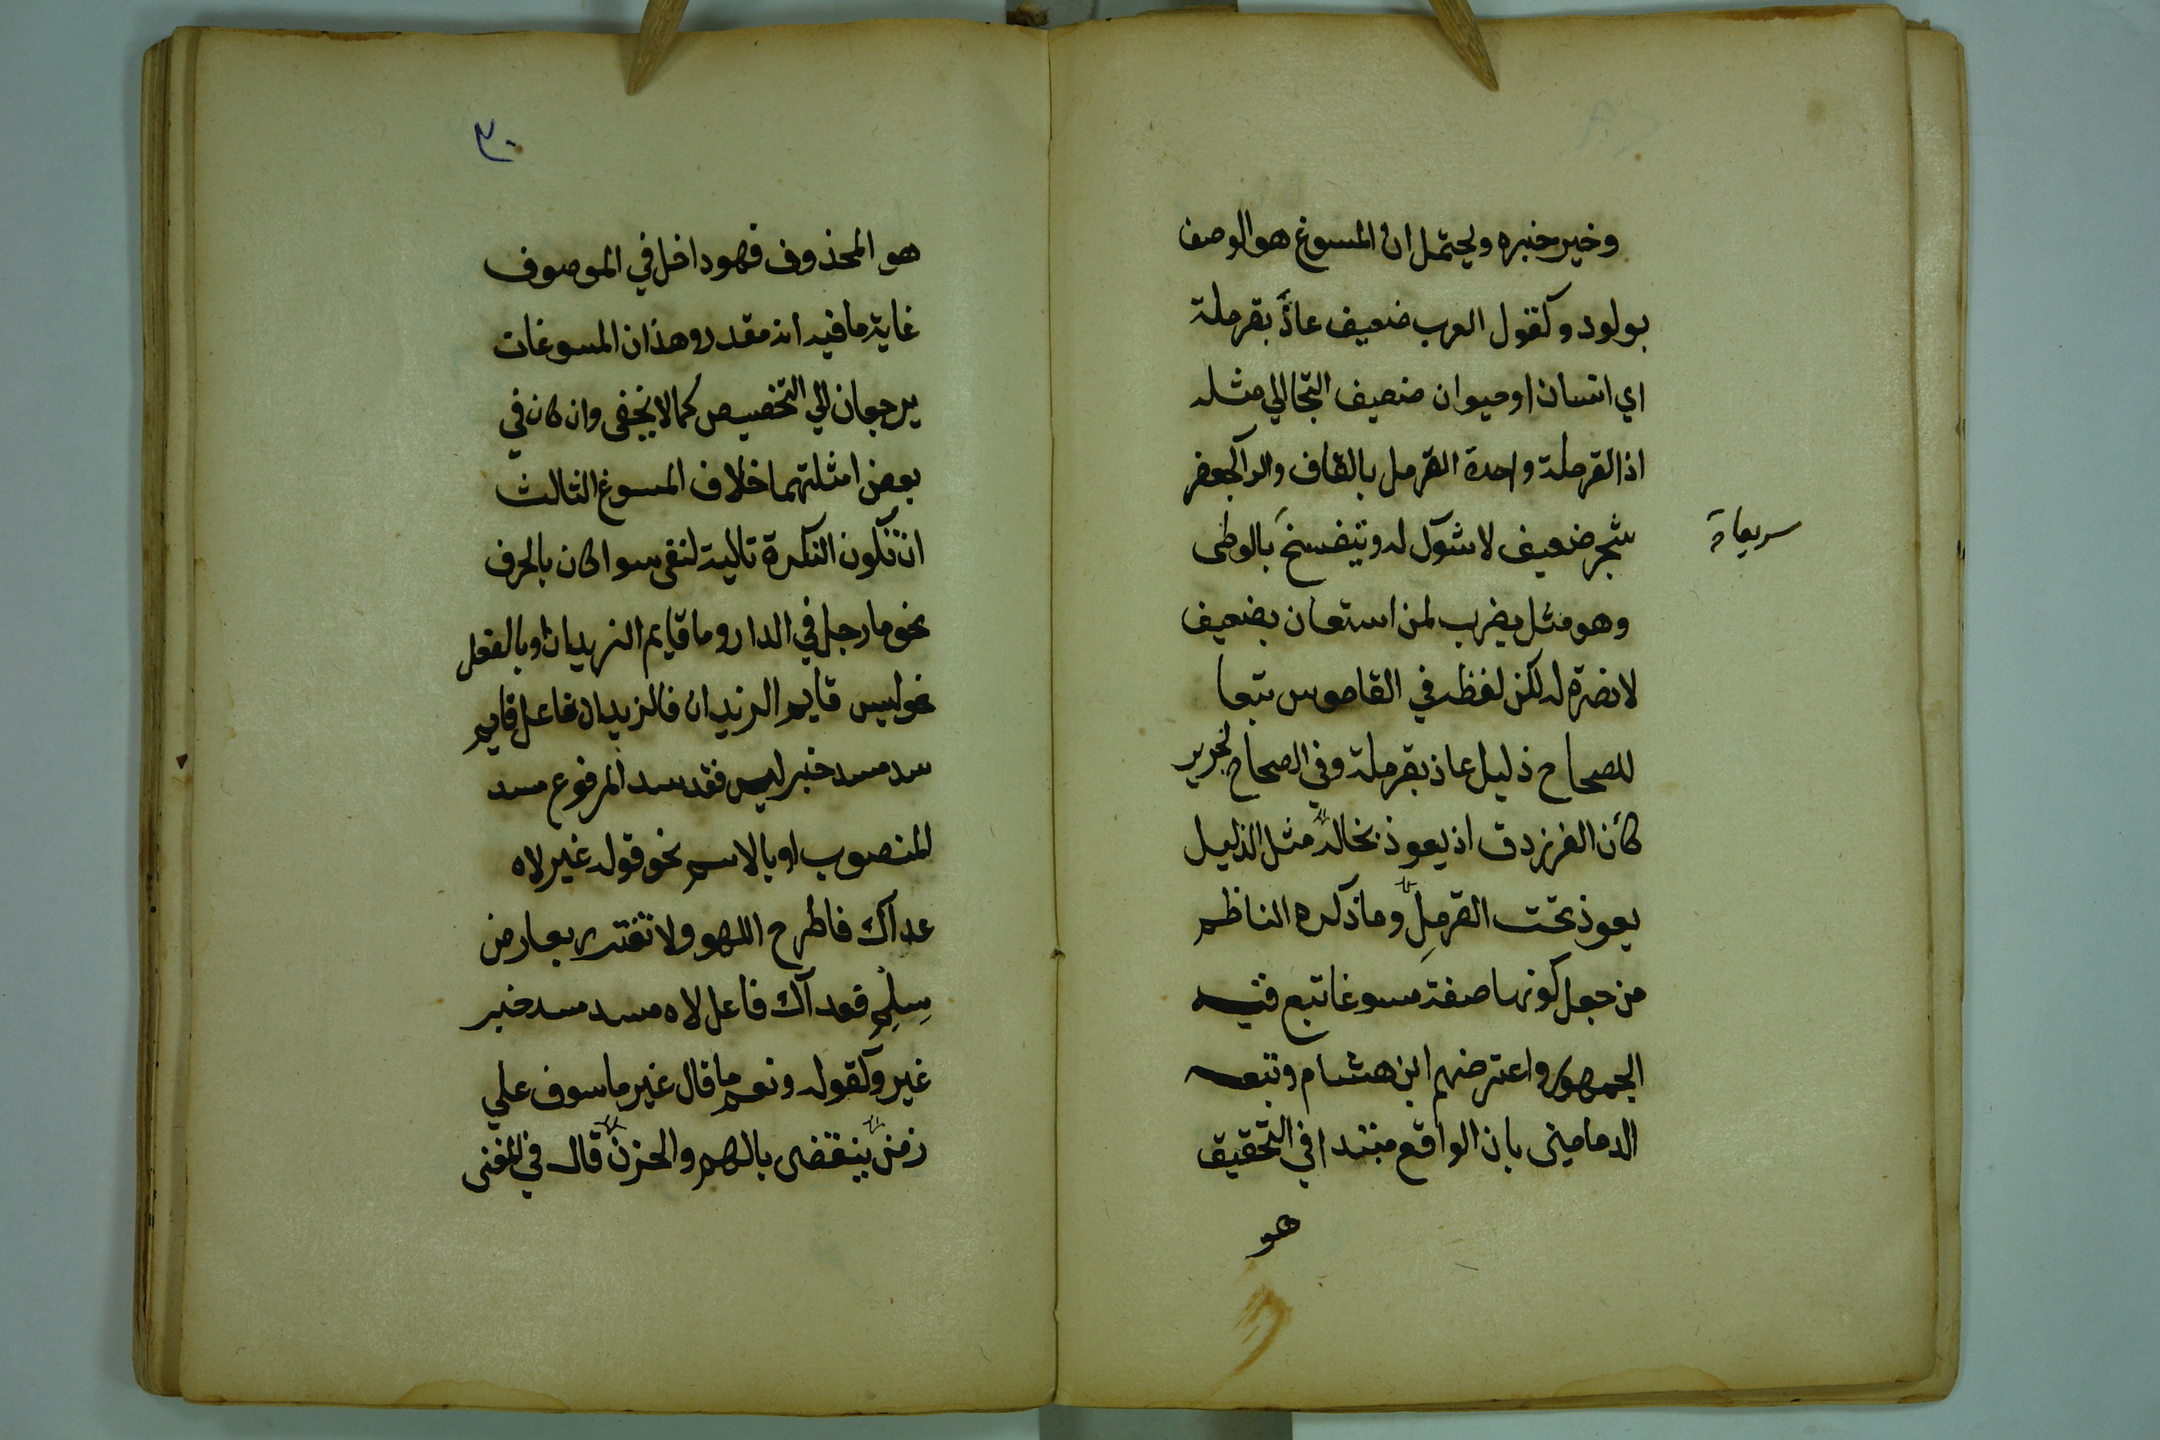 وخير خبره ويحتمل ان المسوغ هو الوصف
بولود وكقول العرب ضعيف عاذ بقرملة
اي انسان او حيوان ضعيف التجا الي مثله
اذ القرملة واحدة القرمل بالقاف والرا كجعفر
شجر ضعيف لا شوك له وتنفسخ بالوطى
سريعا
وهو مثل يضرب لمن استعان بضعيف
لا نصرة له لكن لفظه في القاموس تبعا
للصحاح ذليل عاذ بقرملة وفي الصحاح لجرير
كأن الفرزدق اذ يعوذ بخاله مثل الذليل
يعوذ تحت القرملِ وما ذكره الناظم
من جعل كونها صفة مسوغا تبع فيه
الجمهور واعترضهم ابن هشام وتبعه
الدماميني بان الواقع مبتدا في التحقيق
هو
٣٠
هو المحذوف فهو داخل في الموصوف
غاية ما فيه انه مقدر وهذان المسوغات
يرجعان الي التخصيص كما لا يخفى وان كان في
بعض امثلتهما خلاف المسوغ الثالث
ان تكون النكرة تالية لنفى سوا كان بالحرف
نحو ما رجل في الدار وما قايم الزيدان او بالفعل
نحو ليس قايم الزيدان فالزيدان فاعل قايم
سد مسد خبر ليس فقد سد المرفوع مسد
المنصوب او بالاسم نحو قوله غير لاه
عداك فاطرح اللهو ولا تغترر بعارض
سِلِم فعداك فاعل لاه مسد مسد خبر
غير وكقوله ونعم ما قال غير ماسوف علي
زمن ينقضى بالهم والحزن قال في المغنى